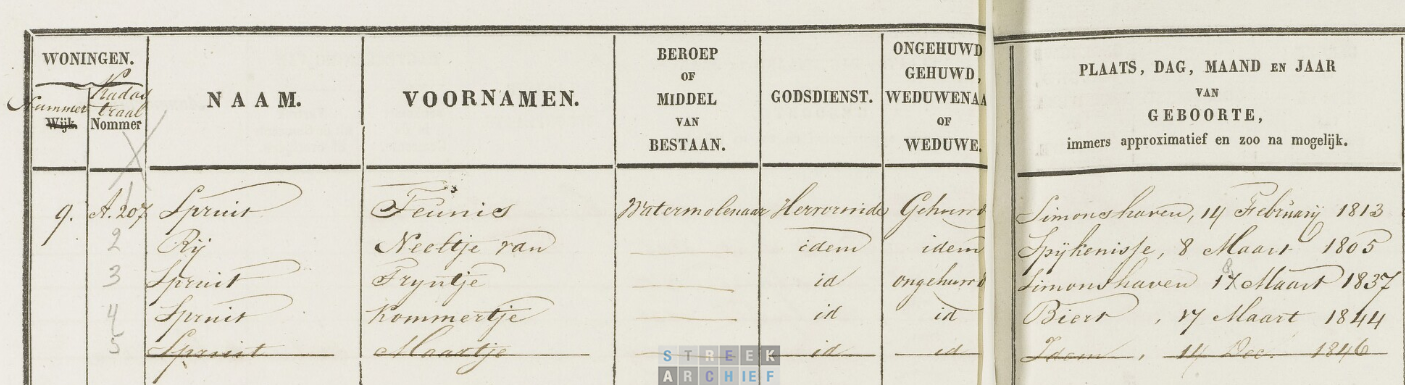 WONINGEN. NAAM. VOORNAMEN. BEROEP OF MIDDEL VAN BESTAAN. GODSDIENST. ONGEHUWD GEHUWD, WEDUWENAA OF WEDUWE. PLAATS, DAG, MAAND EN JAAR VAN GEBOORTE, immers approximatief en zoo na mogelijk.
Nummer Kadas traal
Wijk. Nommer
1
9. A. 207 Spruit Teunis Watermolenaar Hervormde Gehuwd Simonshaven, 14 Februarij 1813
2 Rij Neeltje van idem idem Spijkenisse, 8 Maart 1805
3 Spruit Tryntje id ongehuwd Simonshaven Maart 1837
4 Spruit Kommertje id id Biert, 17 Maart 1844
5 Spruit Maartje id id Idem, 14 Dec. 1846
STREEK
ARCHIEF